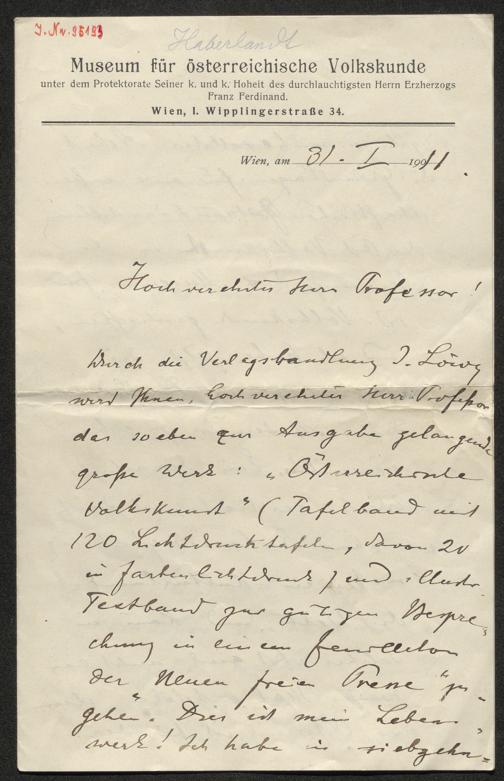 J.Nr. 96193
Haberlandt
Museum für österreichische Volkskunde
unter dem Protektorate Seiner k. und k. Hoheit des durchlauchtigsten Herrn Erzherzogs
Franz Ferdinand.
Wien, I. Wipplingerstraße 34.
Wien, am 31. I 1911.
Hochverehrter Herr Professor!
Durch die Verlagshandlung J. Löwy
wird Ihnen, hochverehrter Herr Professor
das soeben zur Ausgabe gelangende
große Werk: „Österreichische
Volkskunst" (Tafelband mit
120 Lichtdrucktafeln, davon 20
in Farbenlichtdruck) und illustr.
Textband zur gütigen Bespre-
chung in einem Feuilleton
der Neuen freien Presse "zu-
gehen". Dies ist mein Lebens-
werk! Ich habe in siebzehn-